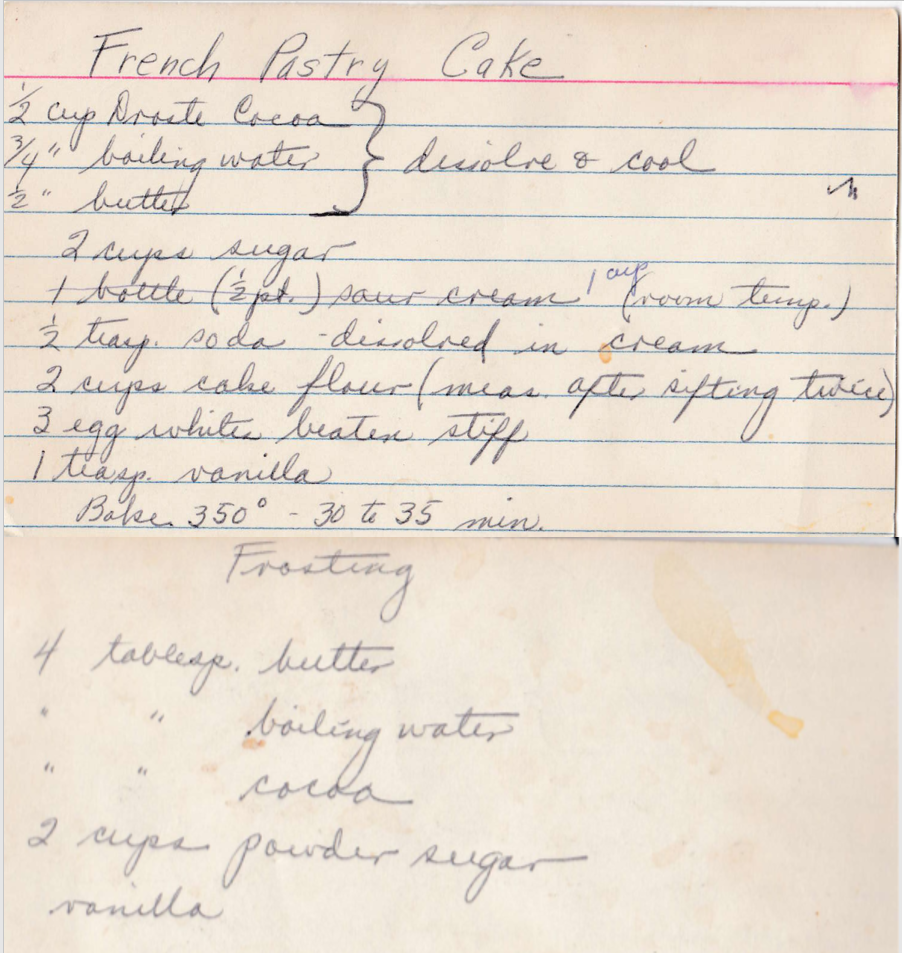 French Pastry Cake
½ cup Droste Cocoa
¾ " boiling water } dissolve & cool
½ " butter
2 cups sugar
1 bottle (½ pt.) sour cream 1 cup (room temp.)
½ teasp. soda - dissolved in cream
2 cups cake flour (meas. after sifting twice)
3 egg whites beaten stiff
1 teasp. vanilla
Bake 350° - 30 to 35 min.
Frosting
4 tablesp. butter
" " boiling water
" " cocoa
2 cups powder sugar
vanilla